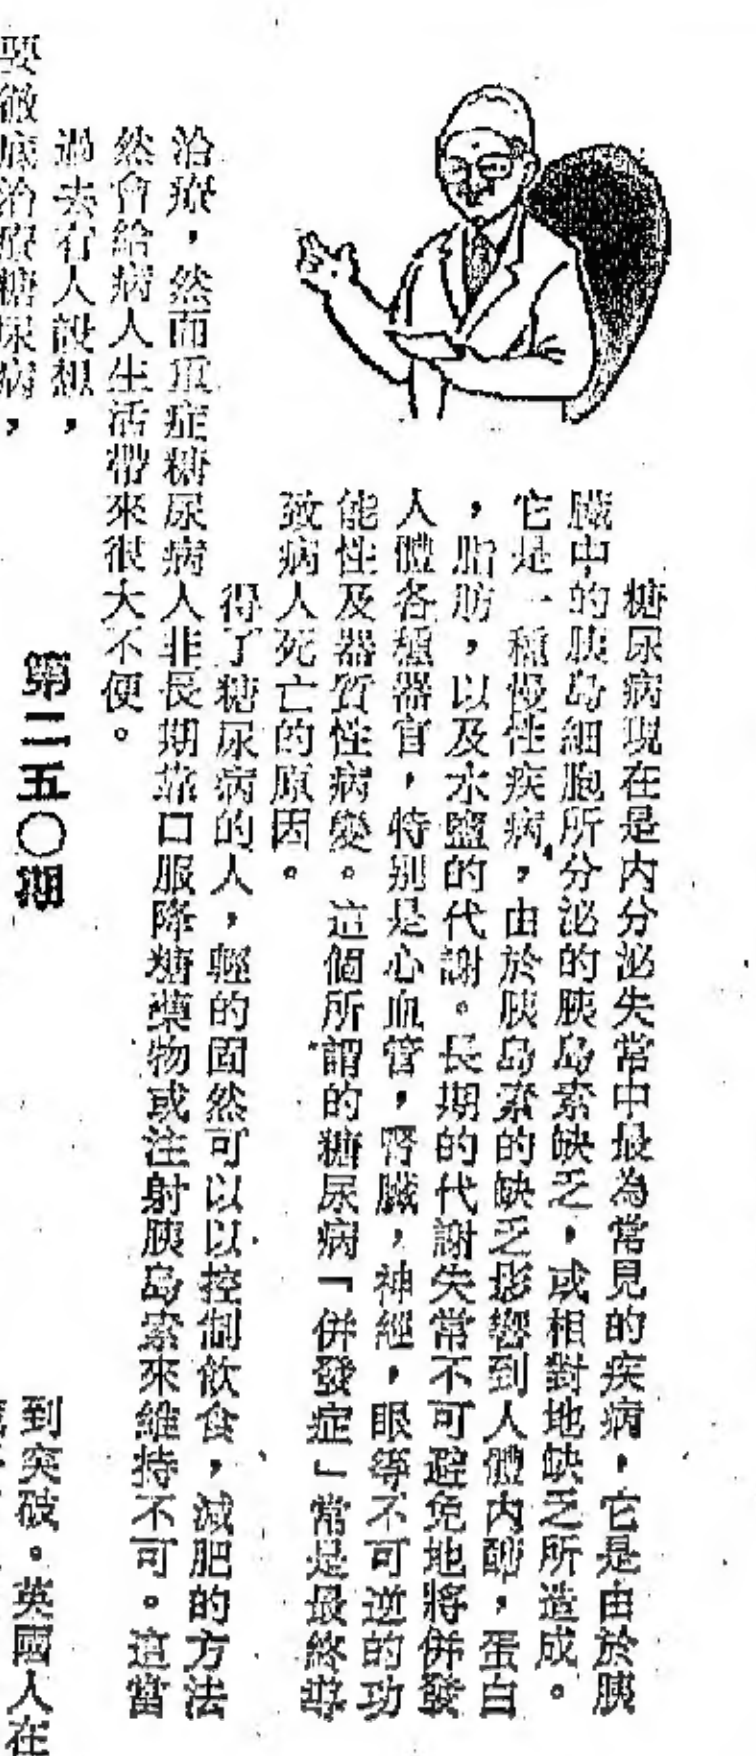 糖尿病現在是內分泌失常中最為常見的疾病，它是由於胰
臟中的胰島細胞所分泌的胰島素缺乏，或相對地缺乏所造成。
它是一種慢性疾病，由於胰島素的缺乏影響到人體內醣，蛋白
，脂肪，以及水鹽的代謝。長期的代謝失常不可避免地將併發
人體各種器官，特別是心血管，腎臟，神經，眼等不可逆的功
能性及器質性病變。這個所謂的糖尿病「併發症」常是最終導
致病人死亡的原因。
得了糖尿病的人，輕的固然可以以控制飲食，減肥的方法
治療，然而重症糖尿病人非長期靠口服降糖藥物或注射胰島素來維持不可。這當
然會給病人生活帶來很大不便。
過去有人設想，
要徹底治療糖尿病，
第二五〇期
到突破。英國人在